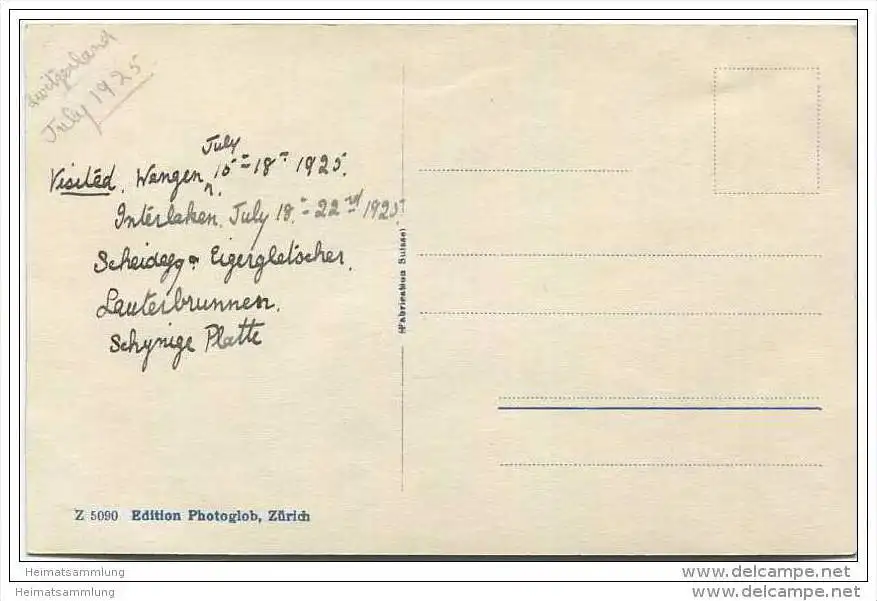 Switzerland
July 1925
July
Visited, Wengen, 15 - 18 - 1925.
Interlaken, July 18 - - 22nd 1925
Scheidegg & Eigergletscher,
Lauterbrunnen,
Schynige Platte
(Fabrication Suisse)
Z 5090 Edition Photoglob, Zürich
Heimatsammlung
Heimatsammlung
www.delcampe.net
www.delcampe.net